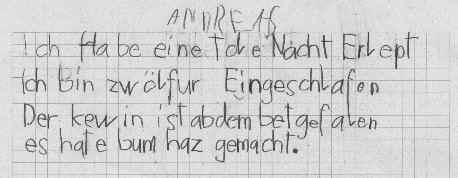 ANDREAS
Ich Habe eine Tole Nacht Erlept
Ich Bin zwölfur Eingeschlafen
Der kewin ist abdem bet gefalen
es hate bum haz gemacht.